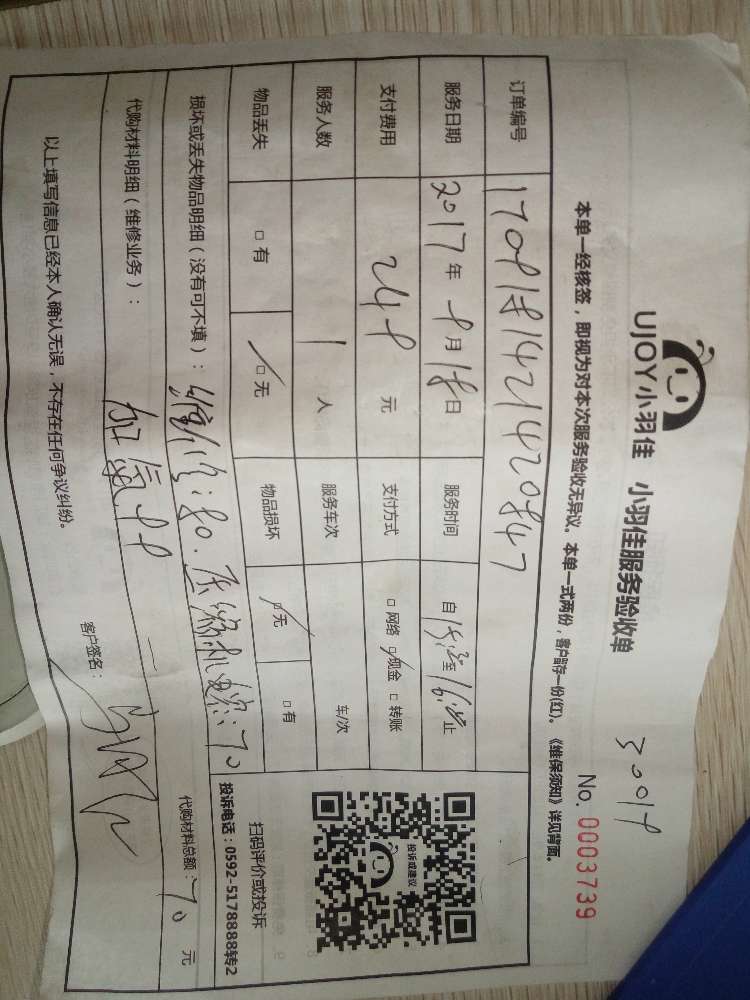 UJOY小羽佳 小羽佳服务验收单
3001
No. 0003739
本单一经核签，即视为对本次服务验收无异议。本单一式两份，客户留存一份(红)。《维保须知》详见背面。
订单编号
服务日期 2017年 8月18日 服务时间 自 至 止
支付费用 元 支付方式 □网络 □现金 □转账
服务人数 1 人 服务车次 车/次
物品丢失 □有 □无 物品损坏 □无 □有
投诉或建议
扫码评价或投诉
投诉电话：0592-5178888转2
损坏或丢失物品明细（没有可不填）：维修：80. 压缩机 ：70
代购材料明细（维修业务）：加氟 代购材料总额：70 元
以上填写信息已经本人确认无误，不存在任何争议纠纷。 客户签名：